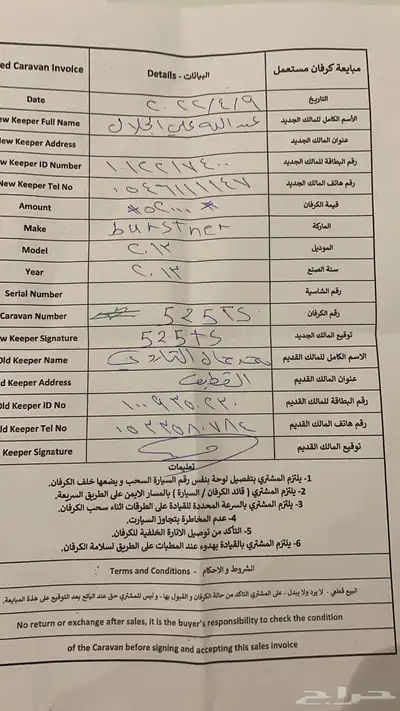 ed Caravan Invoice البيانات - Details مبايعة كرفان مستعمل
Date ٢٠٢٢/٤/٩ التاريخ
ew Keeper Full Name عبدالله علي الجلال الأسم الكامل للمالك الجديد
New Keeper Address عنوان المالك الجديد
w Keeper ID Number رقم البطاقة للمالك الجديد
New Keeper Tel No رقم هاتف المالك الجديد
Amount قيمة الكرفان
Make burstner الماركة
Model ٢٠١٣ الموديل
Year ٢٠١٣ سنة الصنع
Serial Number رقم الشاسية
Caravan Number 525TS رقم الكرفان
w Keeper Signature 525TS توقيع المالك الجديد
Old Keeper Name الاسم الكامل للمالك القديم
d Keeper Address القطيف عنوان المالك القديم
Old Keeper ID No رقم البطاقة للمالك القديم
ld Keeper Tel No رقم هاتف المالك القديم
Keeper Signature توقيع المالك القديم
تعليمات
1- يلتزم المشتري بتفصيل لوحة بنفس رقم السيارة السحب و يضعها خلف الكرفان.
2- يلتزم المشتري ( قائد الكرفان / السيارة ) بالمسار الايمن على الطريق السريعة.
3- يلتزم المشتري بالسرعة المحددة للقيادة على الطرقات اثناء سحب الكرفان.
4- عدم المخاطرة بتجاوز السيارت.
5- التأكد من توصيل الانارة الخلفية للكرفان.
6- يلتزم المشتري بالقيادة بهدوء عند المطبات على الطريق لسلامة الكرفان.
Terms and Conditions - الشروط و الاحكام :
البيع قطعي - لا يرد ولا يبدل - على المشتري التاكد من حالة الكرفان و القبول بها - و ليس للمشتري حق عند البائع بعد التوقيع على هذة المبايعة.
No return or exchange after sales, it is the buyer's responsibility to check the condition
of the Caravan before signing and accepting this sales invoice
حراج